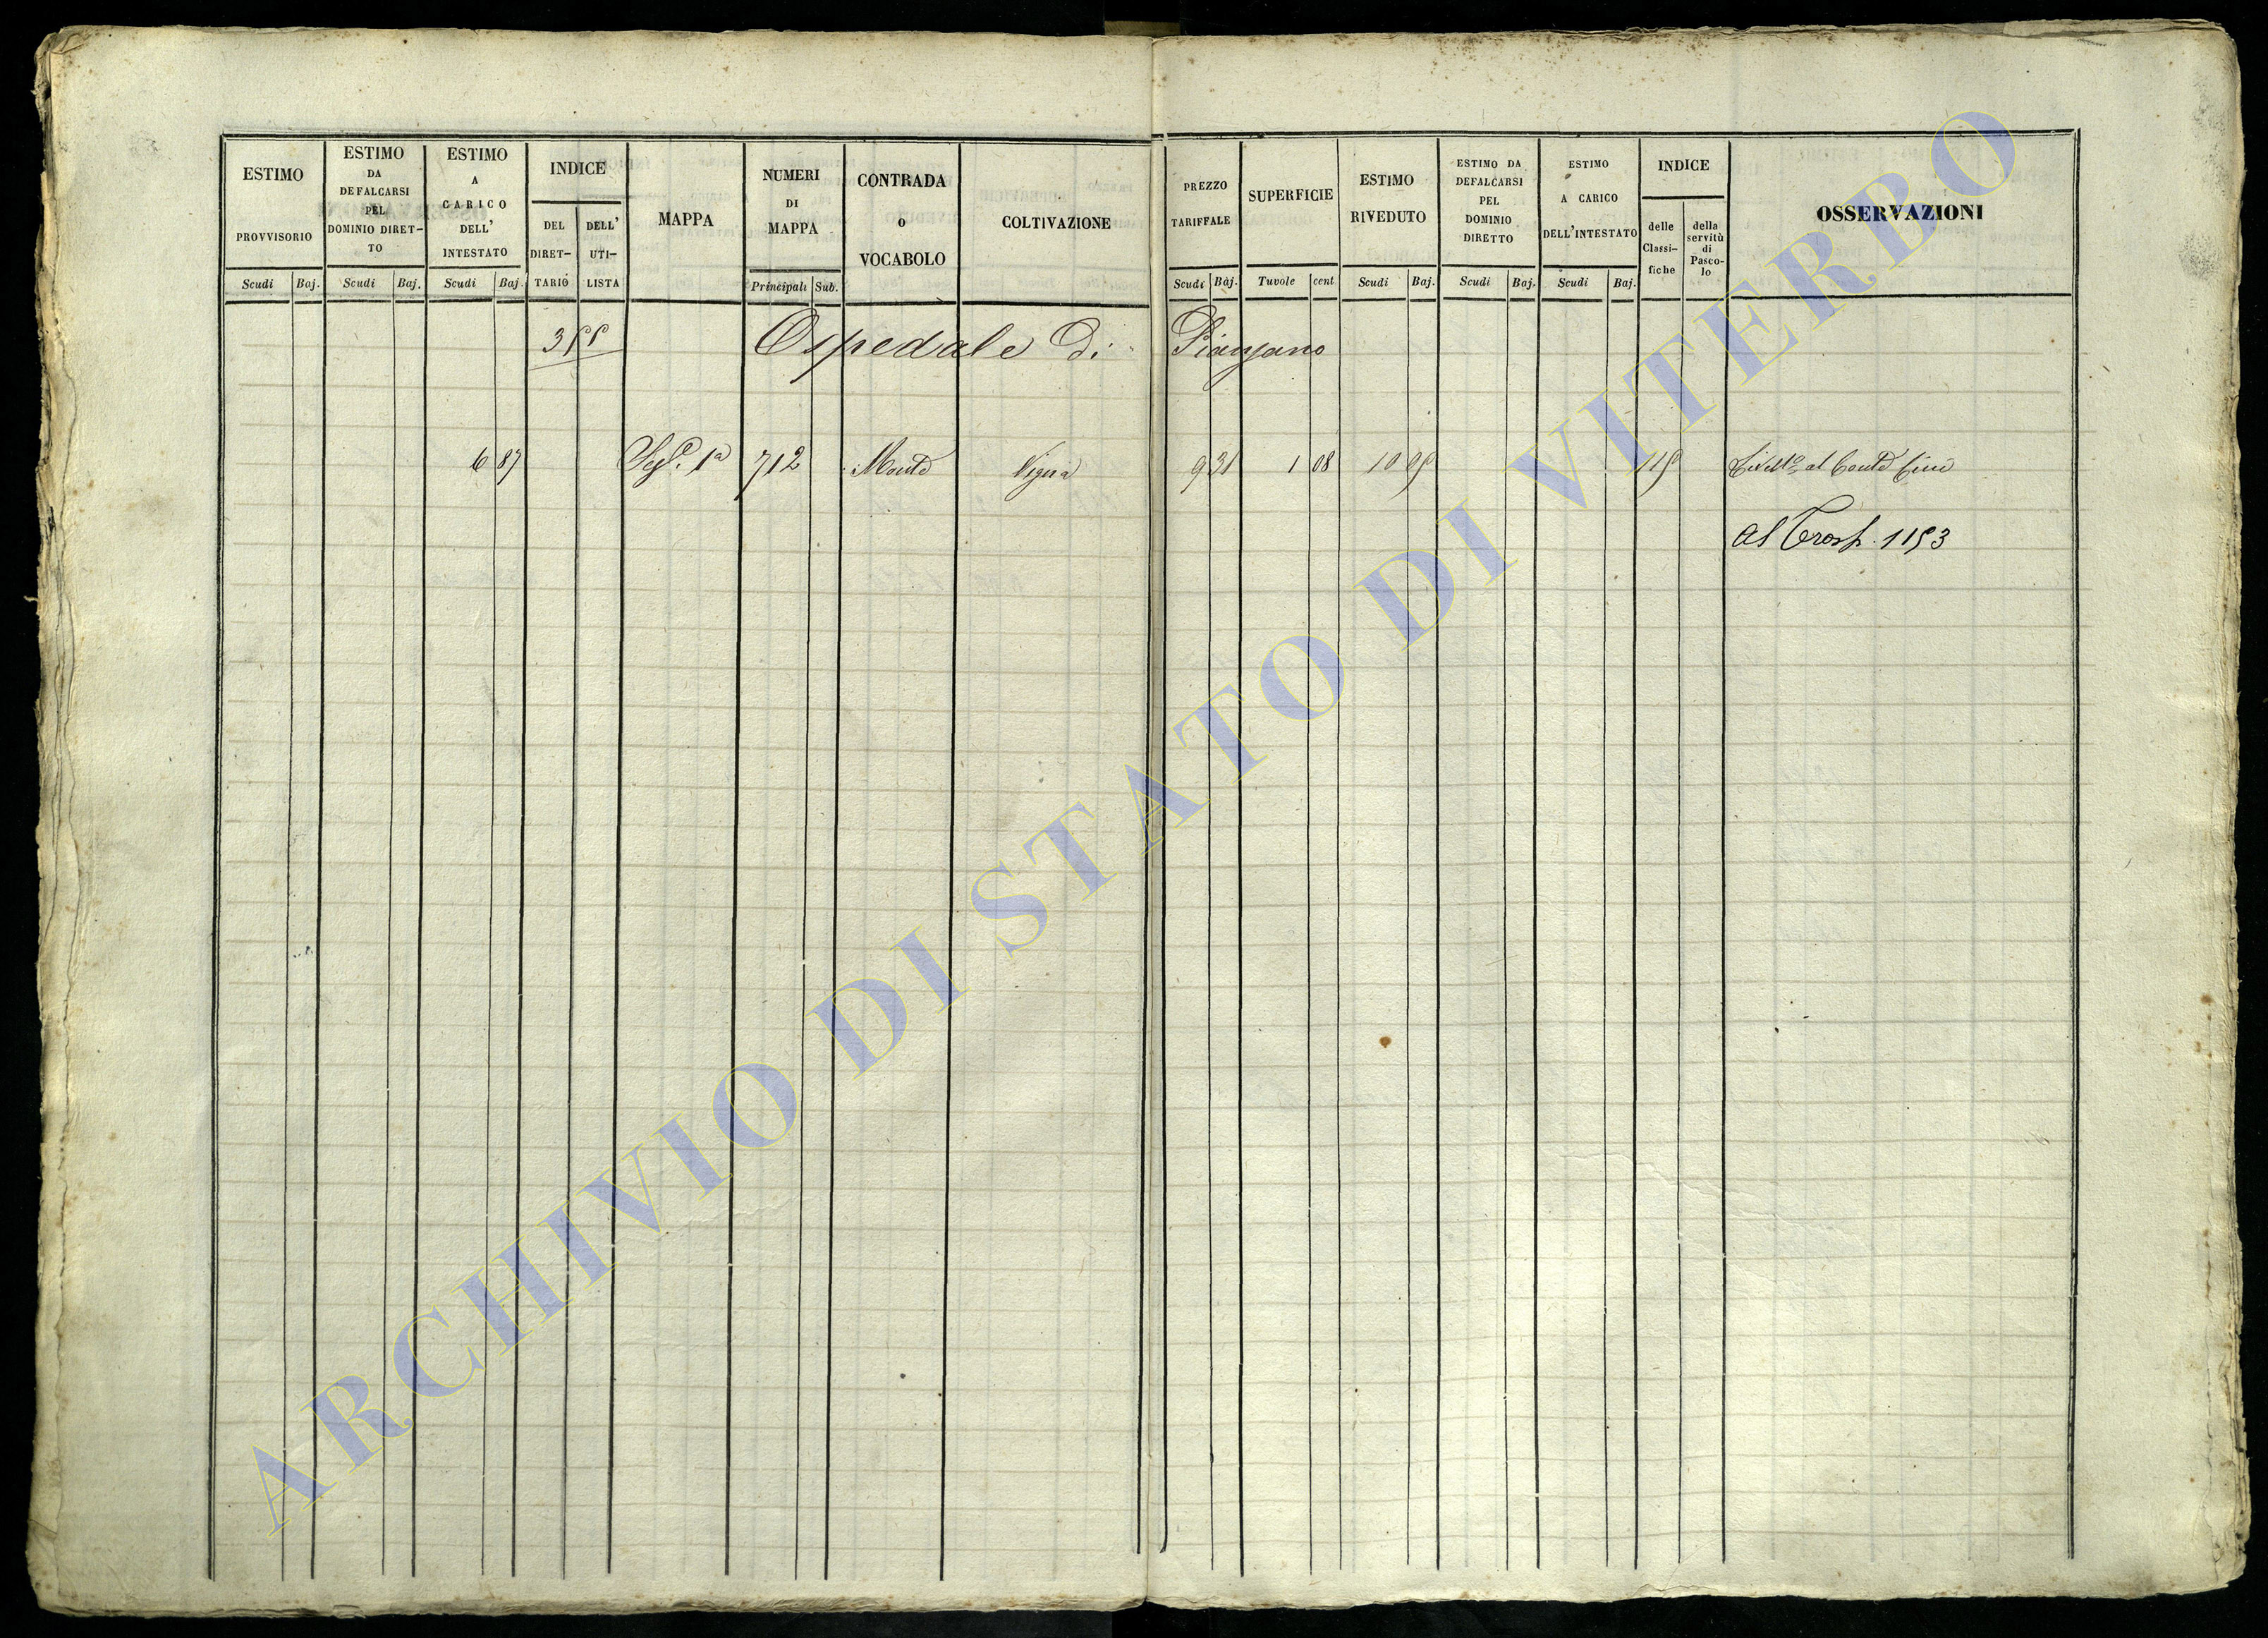 ESTIMO PROVVISORIO Scudi Baj.
ESTIMO DA DEFALCARSI PEL DOMINIO DIRET- TO Scudi Baj.
ESTIMO A CARICO DELL' INTESTATO Scudi Baj.
INDICE DEL DIRET- TARIO DELL' UTI- LISTA
MAPPA
NUMERI DI MAPPA Principali Sub.
CONTRADA o VOCABOLO
COLTIVAZIONE
PREZZO TARIFFALE Scudi Baj.
SUPERFICIE Tavole cent
ESTIMO RIVEDUTO Scudi Baj.
ESTIMO DA DEFALCARSI PEL DOMINIO DIRETTO Scudi Baj.
ESTIMO A CARICO DELL'INTESTATO Scudi Baj.
INDICE delle Classi- fiche della servitù di Pasco- lo
OSSERVAZIONI
355 Ospedale di Pianzano
6 87 1a 712 Monte Vigna 9 31 1 08 10 05 115 al Conte
Al Trasp. 1153
ARCHIVIO DI STATO DI VITERBO